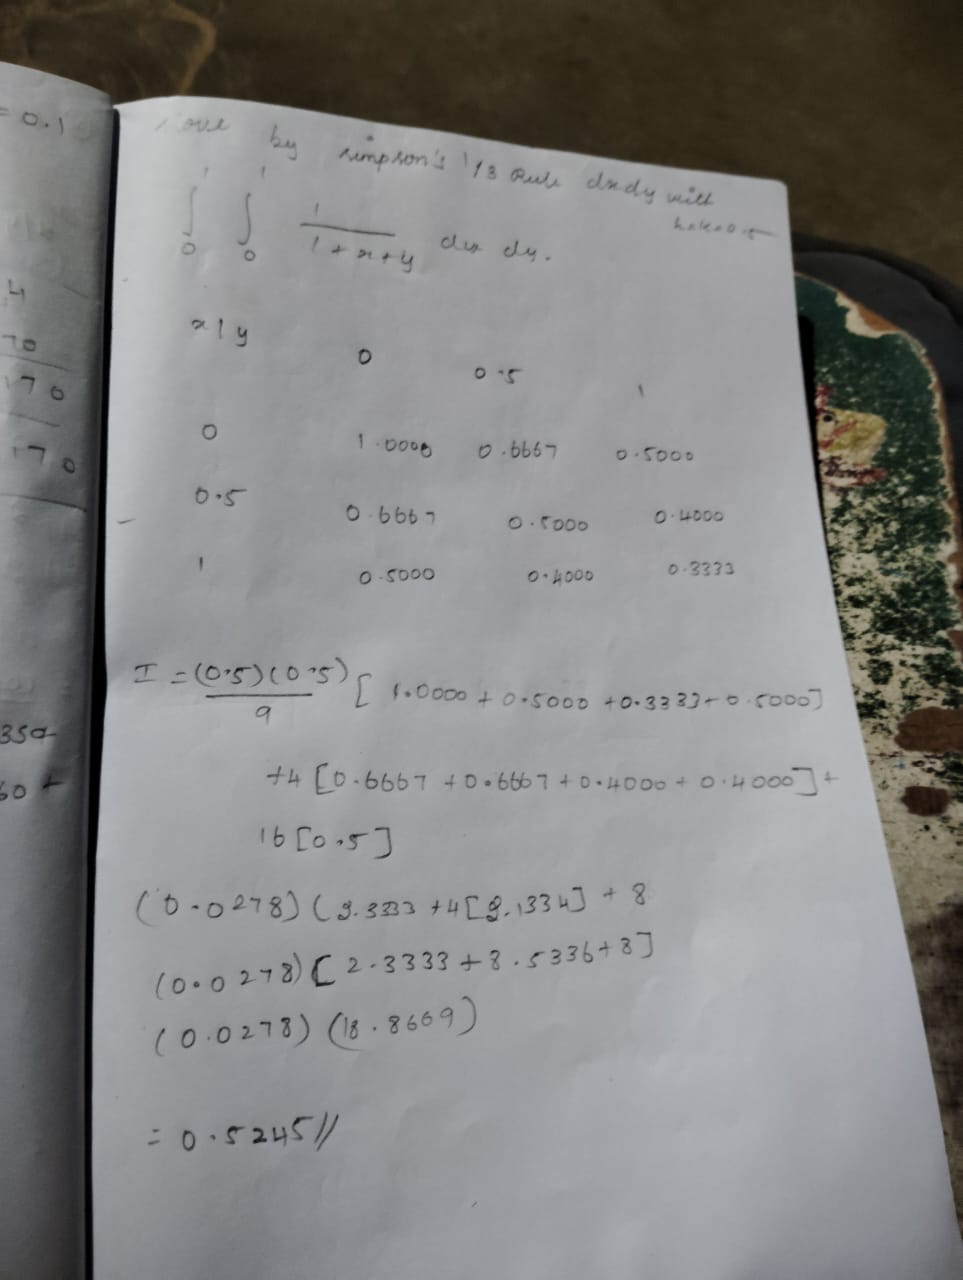 = 0.1
4
70
170
170
350
60 +
by simpson's 1/3 Rule dxdy with
h=k=0.5
∫ 0 1 ∫ 0 1 1 / 1+x+y dx dy.
x|y 0 0.5 1
0 1.0000 0.6667 0.5000
0.5 0.6667 0.5000 0.4000
1 0.5000 0.4000 0.3333
I = (0.5)(0.5) / 9 [ 1.0000 + 0.5000 + 0.3333 + 0.5000]
+4 [0.6667 + 0.6667 + 0.4000 + 0.4000] +
16 [0.5]
(0.0278) (2.3333 + 4 [2.1334] + 8
(0.0278) [ 2.3333 + 8.5336 + 8]
(0.0278) (18.8669)
= 0.5245 //